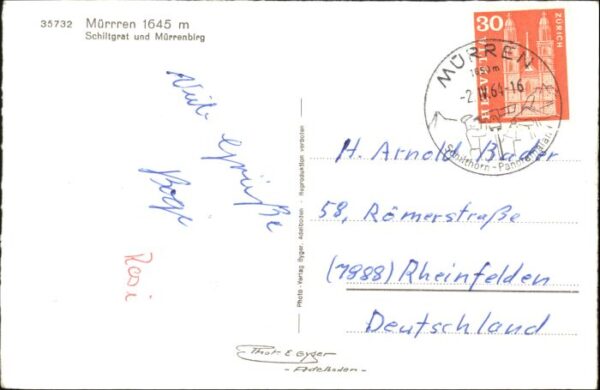 35732 Mürrren 1645 m
Schiltgrat und Mürrenbirg
Viele Grüße
Rosi
Photo-Verlag Gyger, Adelboden - Reproduktion verboten
Phot E Gyger
- Adelboden -
HELVETIA
30
ZÜRICH
MÜRREN
1650 m
-2.IV.64-16
Schilthorn - Panorama
H. Arnold Bader
58, Römerstraße
(7888) Rheinfelden
Deutschland